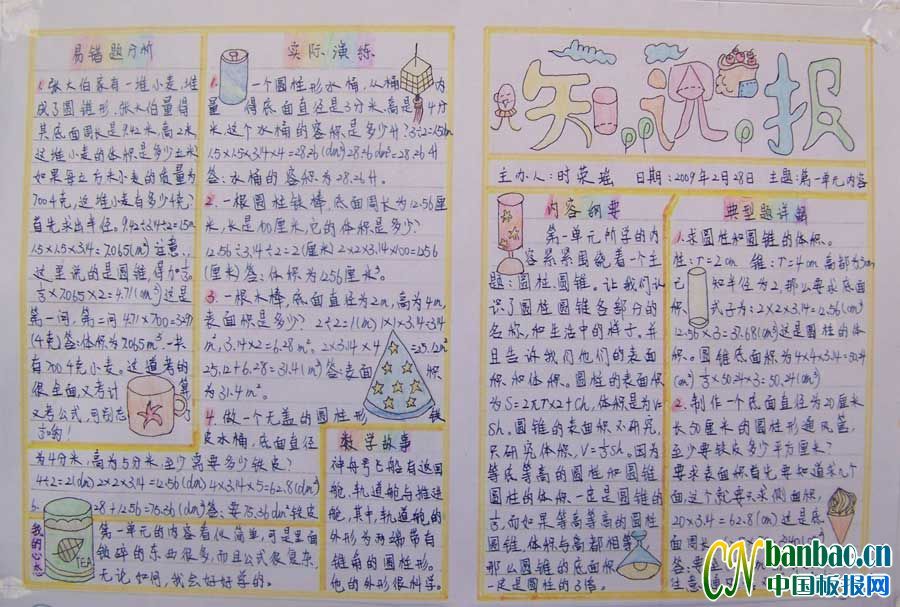 易错题分析
1.张大伯家有一堆小麦,堆
成了圆锥形,张大伯量得
其底面周长是9.42米,高2米,
这堆小麦的体积是多少立方米?
如果每立方米小麦的质量为
700千克,这堆小麦有多少千克?
首先求出半径。9.42÷3.14÷2=1.5m
1.5×1.5×3.14=7.065(m²)注意:
这里说的是圆锥,得加⅓。
⅓×7.065×2=4.71(m³)这是
第一问,第二问4.71×700=3297
(千克)答:体积为7.065m³,一共
有700千克小麦。这道考的
很全面,又考计算
又考公式,可别忘
⅓哟!
实际演练
1.一个圆柱形水桶,从桶内
量得底面直径是3分米,高是4分
米,这个水桶的容积是多少升?3÷2=1.5dm
1.5×1.5×3.14×4=28.26(dm³)28.26dm³=28.26升
答:水桶的容积为28.26升。
2.一根圆柱铁棒,底面周长为12.56厘
米,长是100厘米,它的体积是多少?
12.56÷3.14÷2=2(厘米)2×2×3.14×100=1256
(厘米)答:体积为1256厘米³。
3.一根木棒,底面直径为2m,高为4m,
表面积是多少?2÷2=1(m)1×1×3.14=3.14
m²,3.14×2=6.28m²。2×3.14×4=25.12m²
25.12+6.28=31.4(m²)答:表面积
为31.4m²。
4.做一个无盖的圆柱形铁
皮水桶,底面直径
为4分米,高为5分米,至少需要多少铁皮?
4÷2=2(dm)2×2×3.14=12.56(dm²)4×3.14×5=62.8(dm²)
62.8+12.56=75.36(dm²)答:要75.36dm²铁皮
数学故事
神舟号飞船有返回
舱,轨道舱与推进
舱,其中,轨道舱的
外形为两端带有
锥角的圆柱形。
他的外形很科学。
我的心态
第一单元的内容看似简单,可是里面
琐碎的东西很多,而且公式很复杂,
无论如何,我会好好学的。
TEA
知识报
主办人:时荣瑶 日期:2009年2月28日 主题:第一单元内容
内容纲要
第一单元所学的内
容紧紧围绕着一个主
题:圆柱、圆锥。让我们认
识了圆柱圆锥各部分的
名称,和生活中的样子。并
且告诉我们他们的表面
积和体积。圆柱的表面积
为S=2πr×2+Ch,体积是为V=
Sh。圆锥的表面积不研究,
只研究体积,V=⅓Sh。因为
等底等高的圆柱和圆锥
圆柱的体积一定是圆锥的
⅓,而如果等高等高的圆柱
圆锥,体积与高都相等,
那么圆锥的底面积
一定是圆柱的3倍。
典型题详解
1.求圆柱和圆锥的体积。
柱:r=2cm 锥:r=4cm 高都为3cm
已知半径为2,那么要求底面
积 式子为:2×2×3.14=12.56(cm²)
12.56×3=37.68(cm³)这是圆柱的体
积。圆锥底面积为4×4×3.14=50.24
(cm²)⅓×50.24×3=50.24(cm³)
2.制作一个底面直径为20厘米
长50厘米的圆柱形通风管,
至少要铁皮多少平方厘米?
要求表面积首先要知道求几个
面,这个就要只求侧面积,
20×3.14=62.8(cm)这是底
面周长
答:要
注意
CN banbao.cn
中国板报网